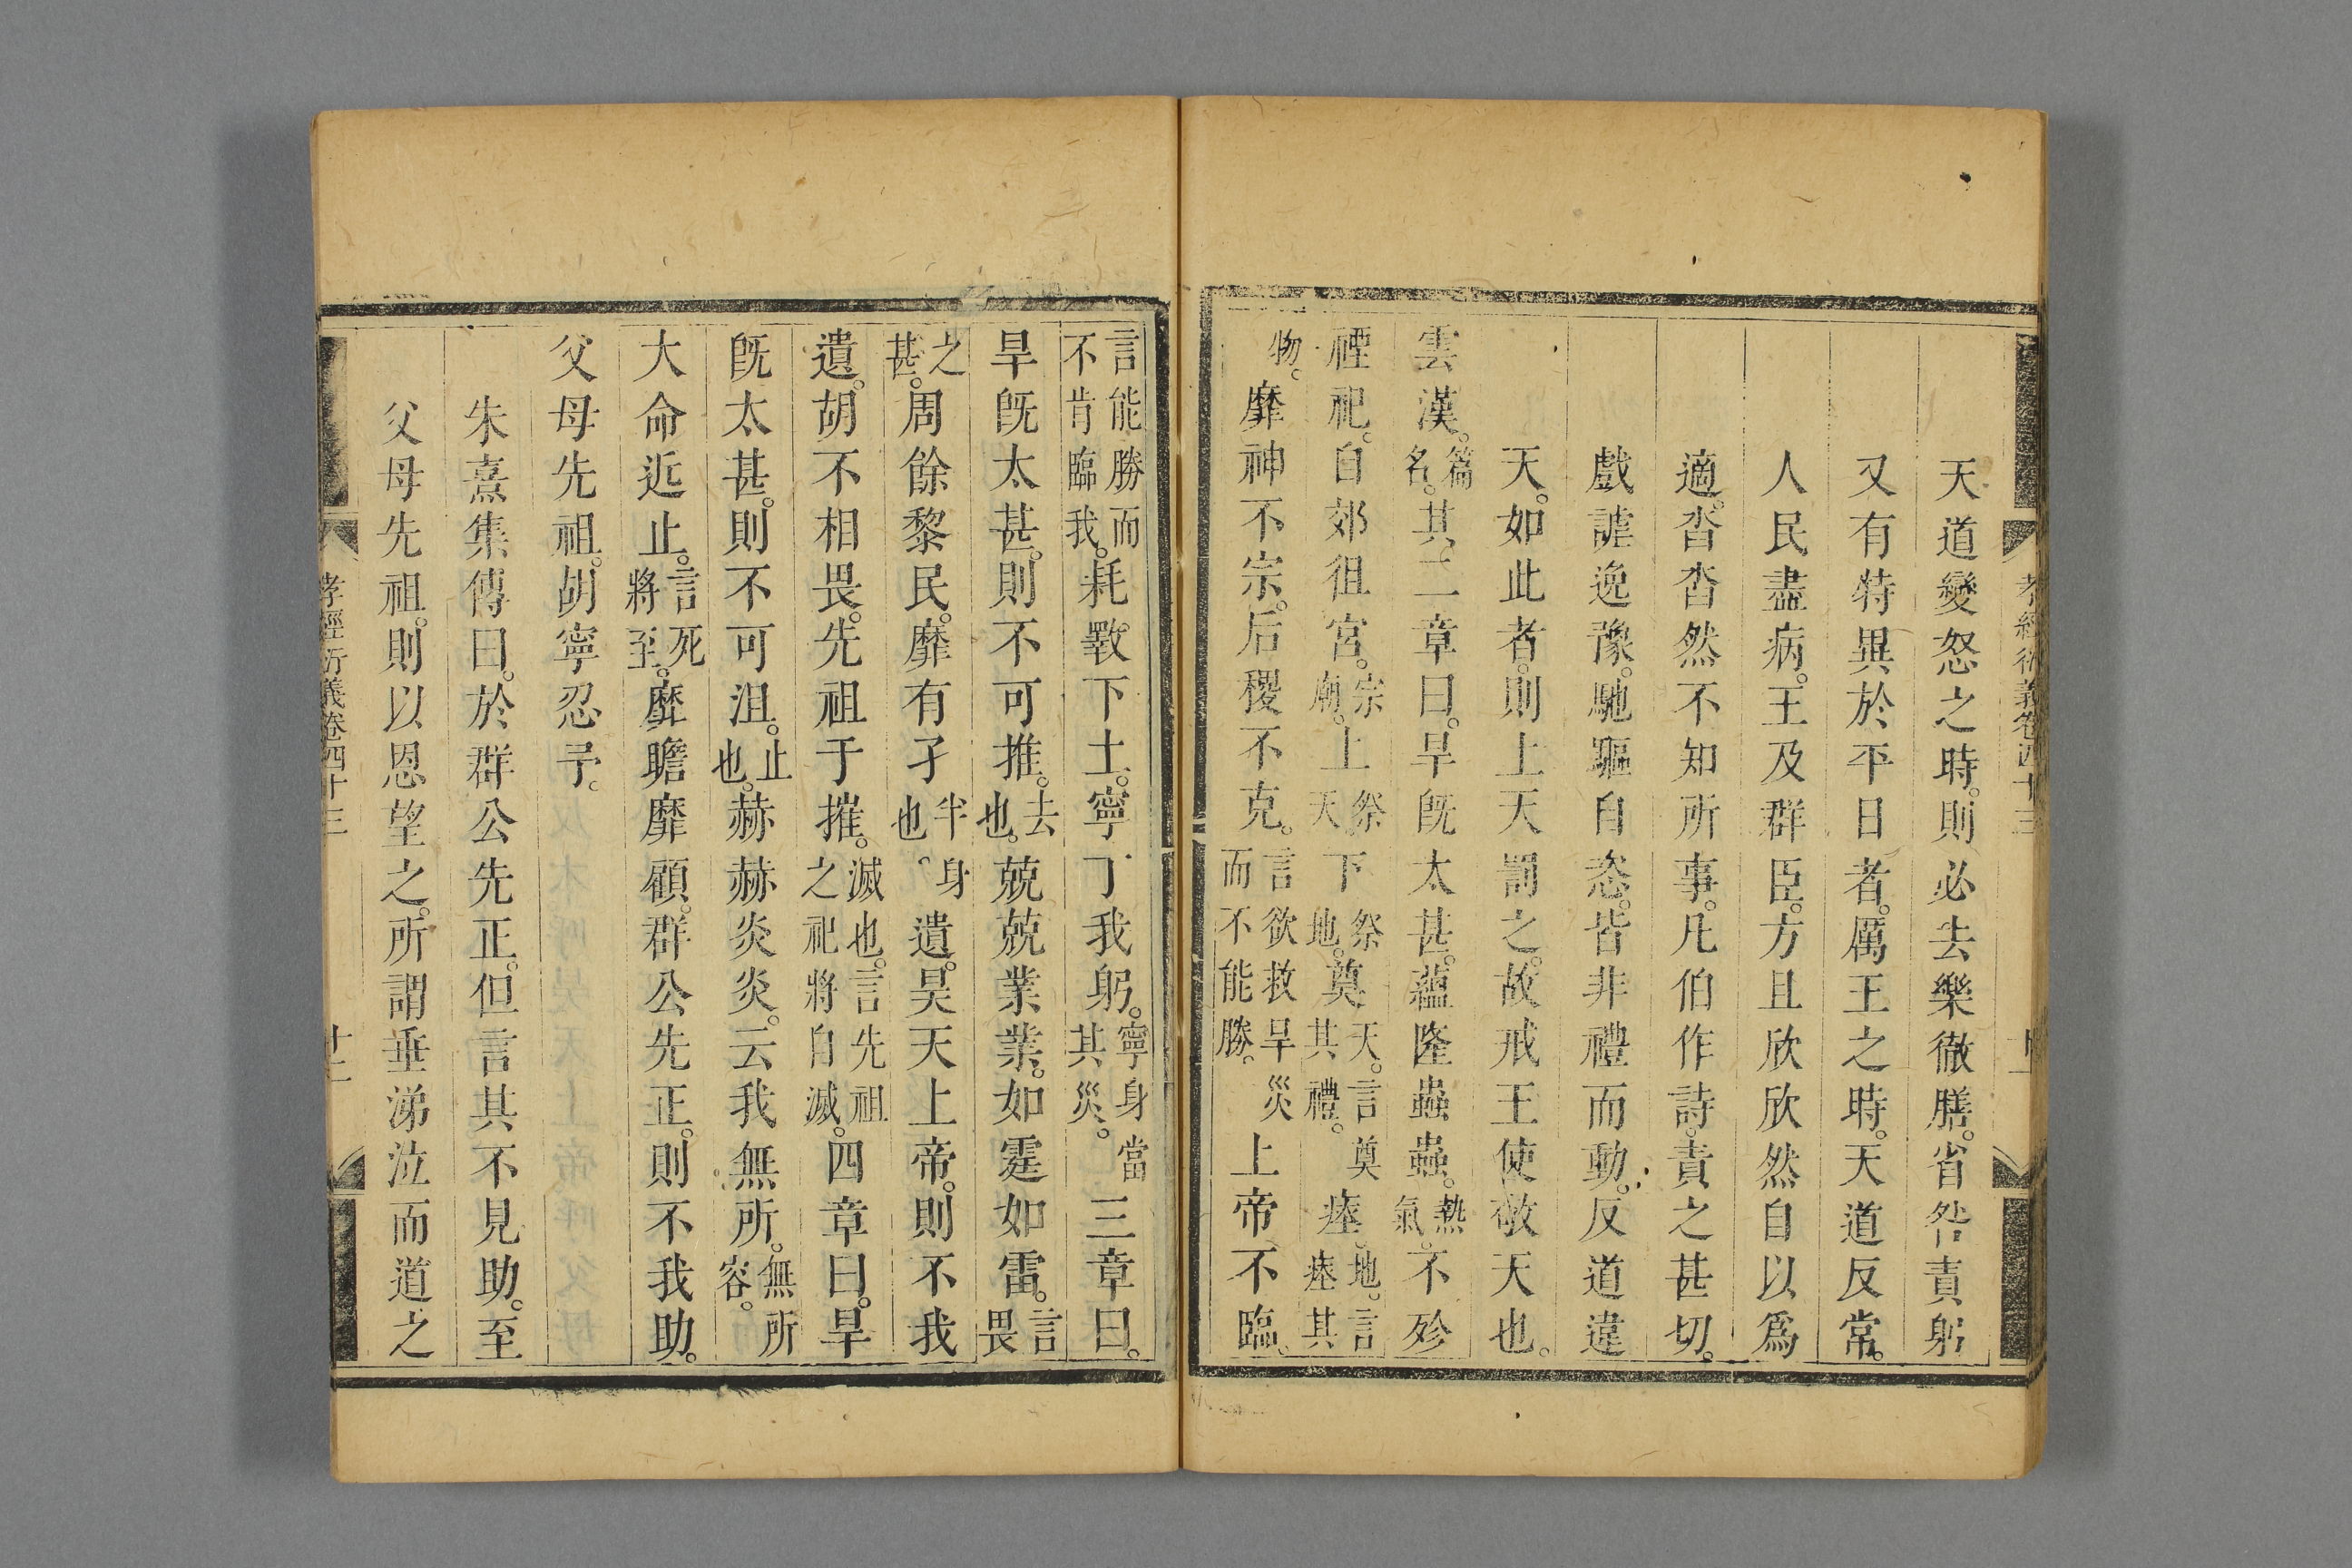 天道變怒之時。則必去樂徹膳。省咎責躬
又有特異於平日者。厲王之時。天道反常。
人民盡病。王及群臣。方且欣欣然自以爲
適。沓沓然不知所事。凡伯作詩。責之甚切。
戲謔逸豫。馳驅自恣。皆非禮而動。反道違
天。如此者。則上天罰之。故戒王使敬天也。
雲漢。篇名。其二章曰。旱既太甚。蘊隆蟲蟲。熱氣。不殄
禋祀。自郊徂宮。宗廟。上祭天下祭地。奠天。言奠其禮。瘞地。言瘞其
物。靡神不宗。后稷不克。言欲救旱災而不能勝。上帝不臨。
言能勝而不肯臨我。耗斁下土。寧丁我躬。寧身當其災。三章曰。
旱既太甚。則不可推。去也。兢兢業業。如霆如雷。言畏
之甚。周餘黎民。靡有孑半身也。遺。昊天上帝。則不我
遺。胡不相畏。先祖于摧。滅也。言先祖之祀將自滅。四章曰。旱
既太甚。則不可沮。止也。赫赫炎炎。云我無所。無所容。
大命近止。言死將至。靡瞻靡顧。群公先正。則不我助。
父母先祖。胡寧忍予。
朱熹集傳曰。於群公先正。但言其不見助。至
父母先祖。則以恩望之。所謂垂涕泣而道之
孝經衍義卷四十三
廿二